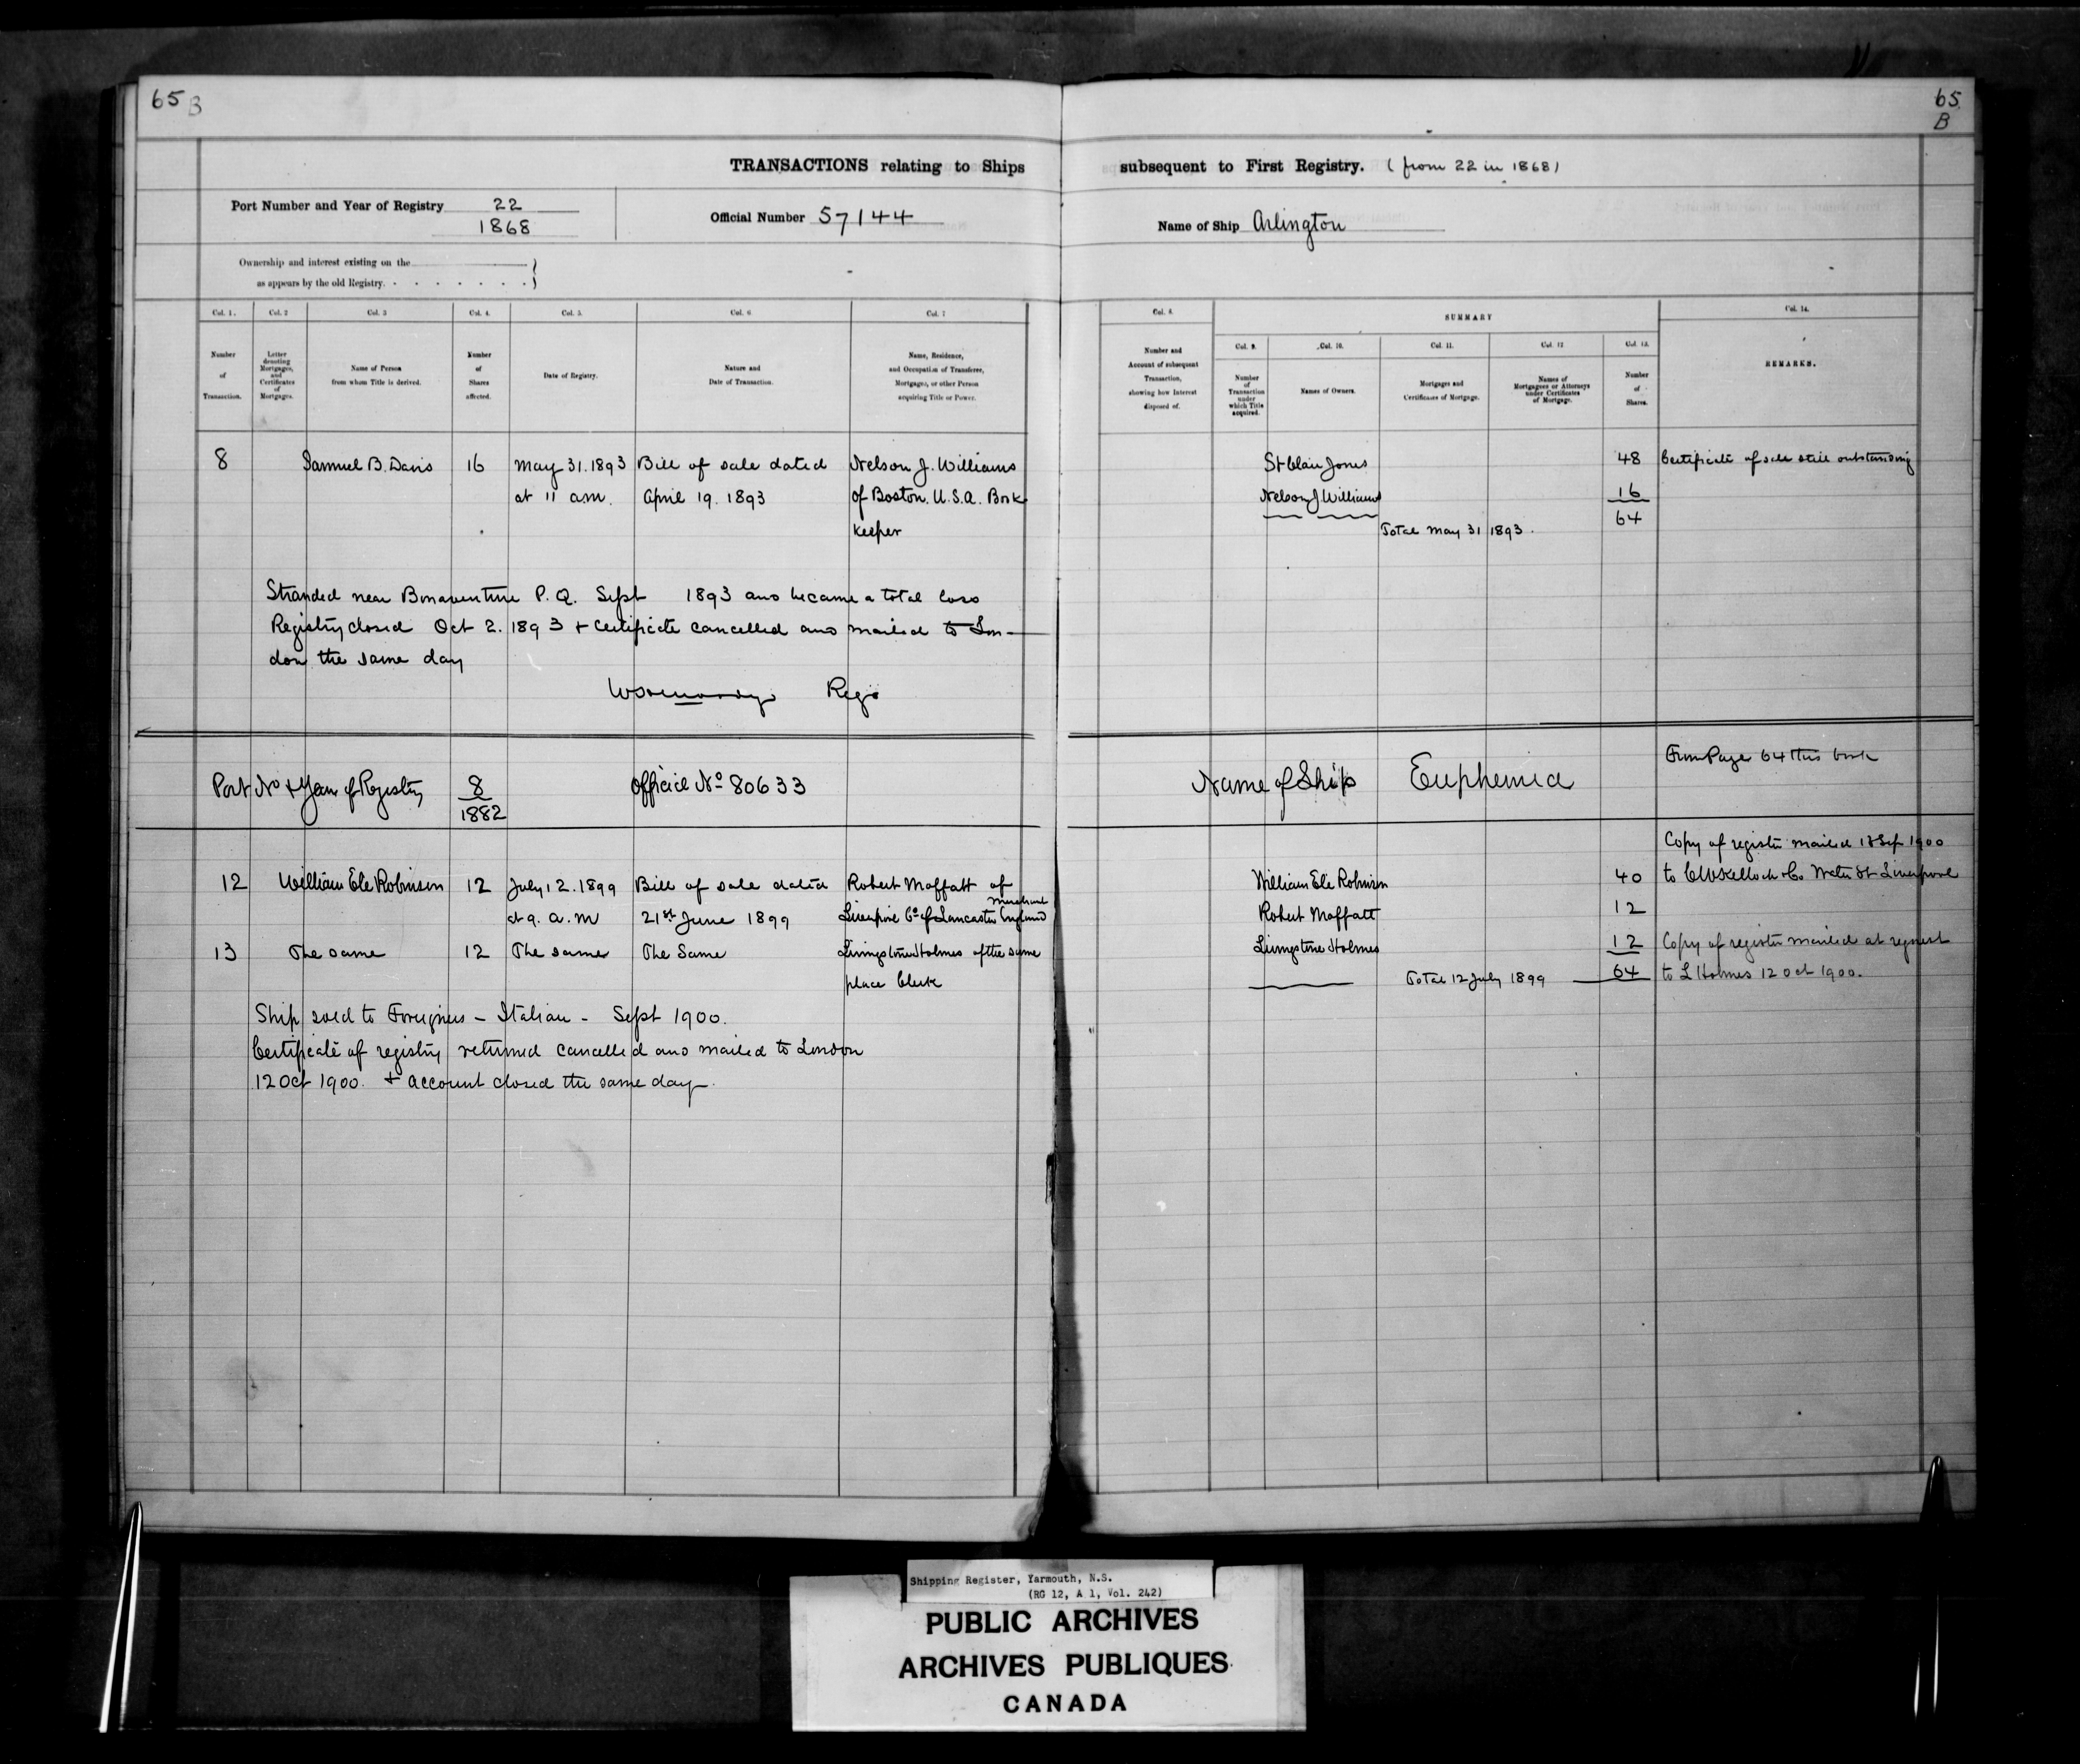 65 B
65
B
TRANSACTIONS relating to Ships subsequent to First Registry. (from 22 in 1868)
Port Number and Year of Registry 22
1868
Official Number 57144
Name of Ship Arlington
Ownership and interest existing on the
as appears by the old Registry.
Col. 1. Col. 2 Col. 3 Col. 4. Col. 5. Col. 6 Col. 7
Number of Transaction.
Letter denoting Mortgages, and Certificates of Mortgages.
Name of Person from whom Title is derived.
Number of Shares affected.
Date of Registry.
Nature and Date of Transaction.
Name, Residence, and Occupation of Transferee, Mortgagee, or other Person acquiring Title or Power.
Col. 8. SUMMARY Col. 14.
Col. 9. Col. 10. Col. 11. Col. 12 Col. 13.
Number and Account of subsequent Transaction, showing how Interest disposed of.
Number of Transaction under which Title acquired.
Names of Owners.
Mortgages and Certificates of Mortgage.
Names of Mortgagees or Attorneys under Certificates of Mortgage.
Number of Shares.
REMARKS.
8 Samuel B. Davis 16 May 31. 1893 Bill of sale dated Nelson J. Williams
at 11 a.m. April 19. 1893 of Boston. U.S.A. Book
keeper
St Clair Jones 48 Certificate of sale still outstanding
Nelson J Williams 16
64
Total May 31 1893.
Stranded near Bonaventure P.Q. Sept 1893 and became a total loss
Registry closed Oct 2. 1893 + Certificate cancelled and mailed to Lon-
don the same day
Regr
Port No + Year of Registry 8
1882
Official No 80633
Name of Ship Euphemia
From Page 64 this book
12 William Ele Robinson 12 July 12. 1899 Bill of sale dated Robert Moffatt of
at 9. a.m 21st June 1899 Liverpool Co of Lancaster England
Merchant
13 The same 12 The same The Same Livingstone Holmes of the same
place Clerk
Copy of register mailed 18 Sep 1900
William Ele Robinson 40 to C W Kelloch & Co Water St Liverpool
Robert Moffatt 12
Livingstone Holmes 12 Copy of register mailed at request
Total 12 July 1899 64 to L Holmes 12 Oct 1900.
Ship sold to Foreigners - Italian - Sept 1900.
Certificate of registry returned cancelled and mailed to London
12 Oct 1900. + account closed the same day.
Shipping Register, Yarmouth, N.S.
(RG 12, A 1, Vol. 242)
PUBLIC ARCHIVES
ARCHIVES PUBLIQUES
CANADA